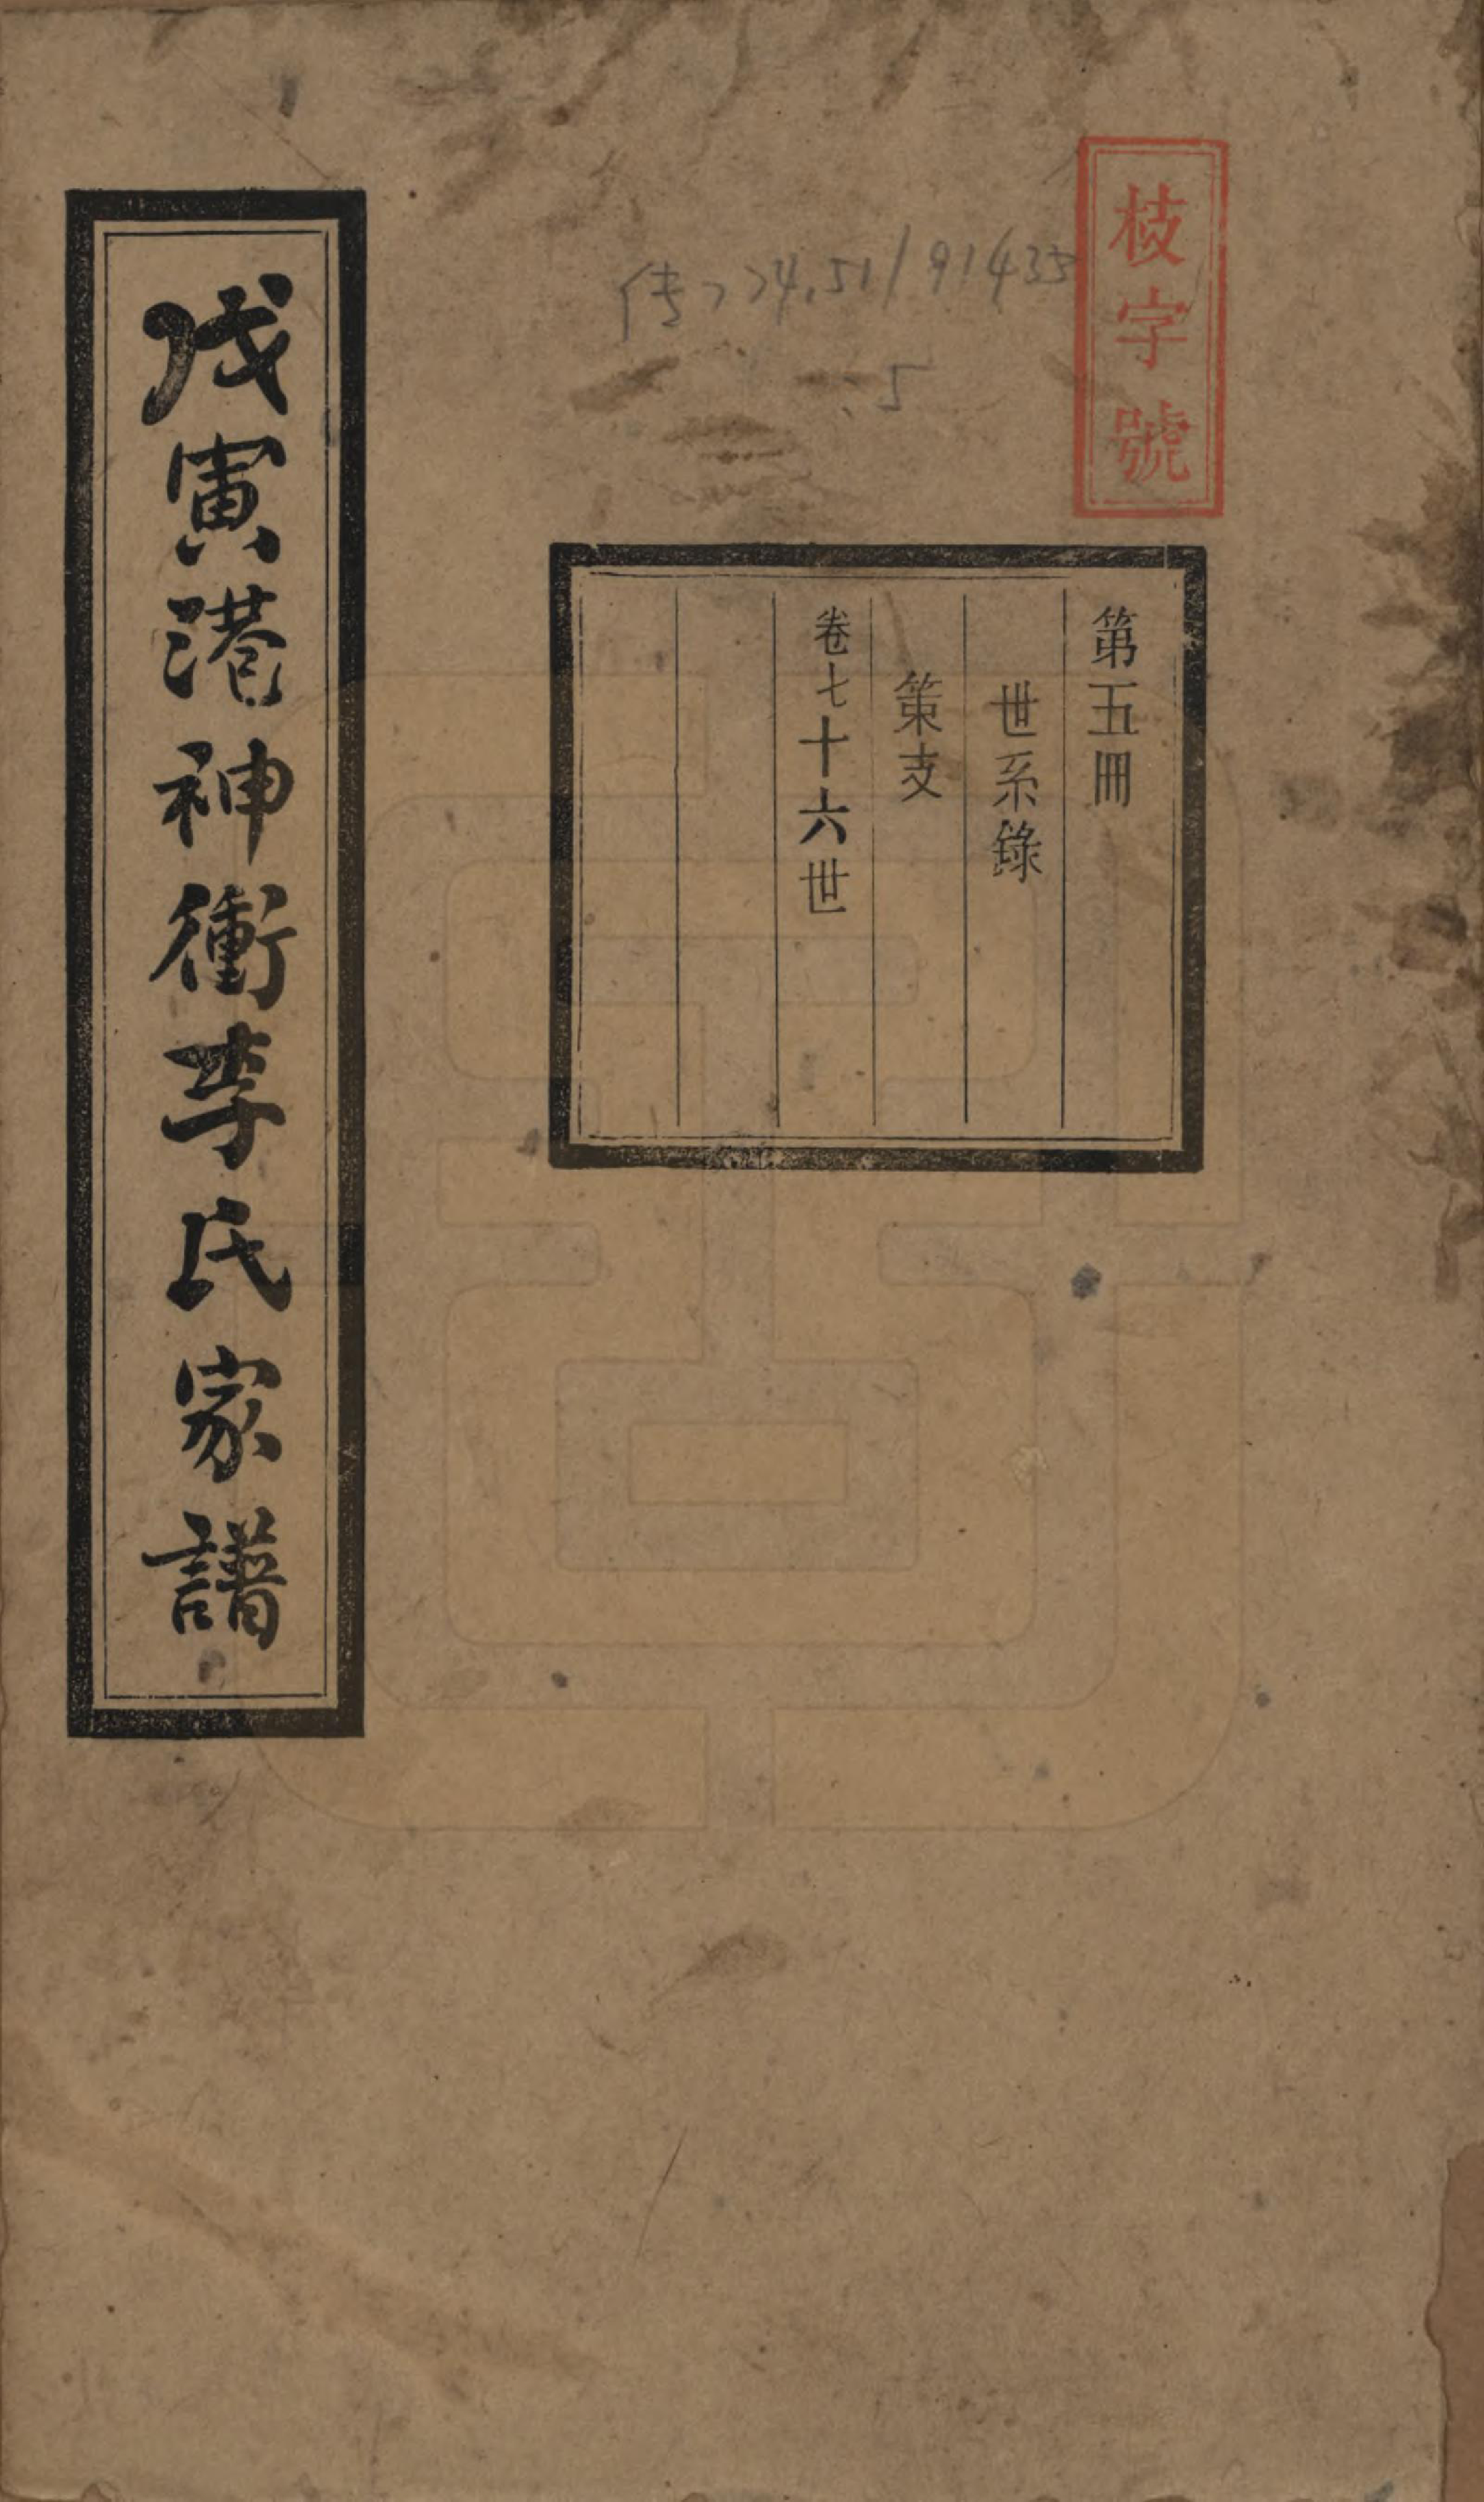 枝字號
传774.51/91435
.5
第五冊
世系錄
策支
卷七十六世
戊寅港神衝李氏家譜